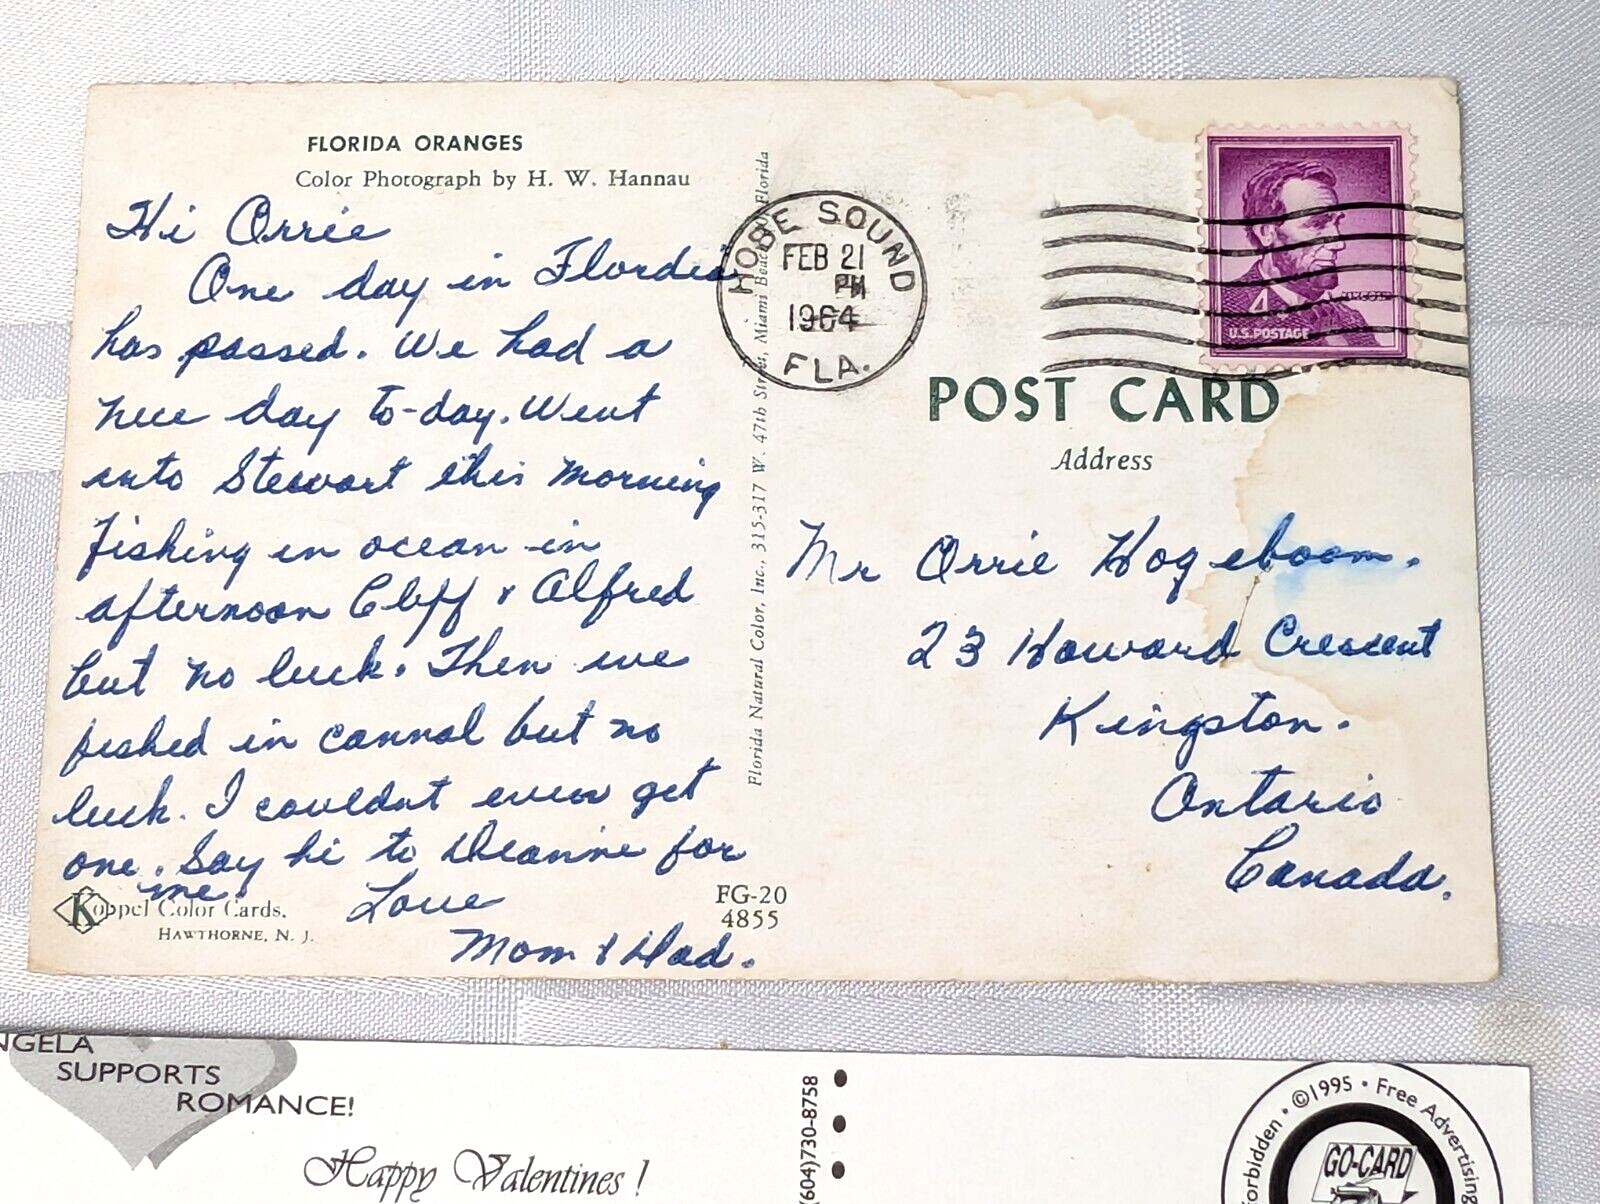 FLORIDA ORANGES
Color Photograph by H. W. Hannau
Hi Orrie
One day in Flordia
has passed. We had a
nice day to-day. Went
into Stewart this morning
fishing in ocean in
afternoon Cliff & Alfred
but no luck. Then we
fished in cannal but no
luck. I couldnt even get
one. Say hi to Deanne for
me.
Love
Mom & Dad.
Koppel Color Cards.
HAWTHORNE, N. J.
FG-20
4855
Florida Natural Color, Inc., 315-317 W. 47th Street, Miami Beach 40, Florida
HOBE SOUND
FEB 21
PM
1964
FLA.
4
U.S. POSTAGE
POST CARD
Address
Mr Orrie Hogeboom.
23 Howard Crescent
Kingston.
Ontario
Canada.
NGELA
SUPPORTS
ROMANCE!
Happy Valentines!
(604)730-8758
orbidden • ©1995 • Free Advertising
GO-CARD